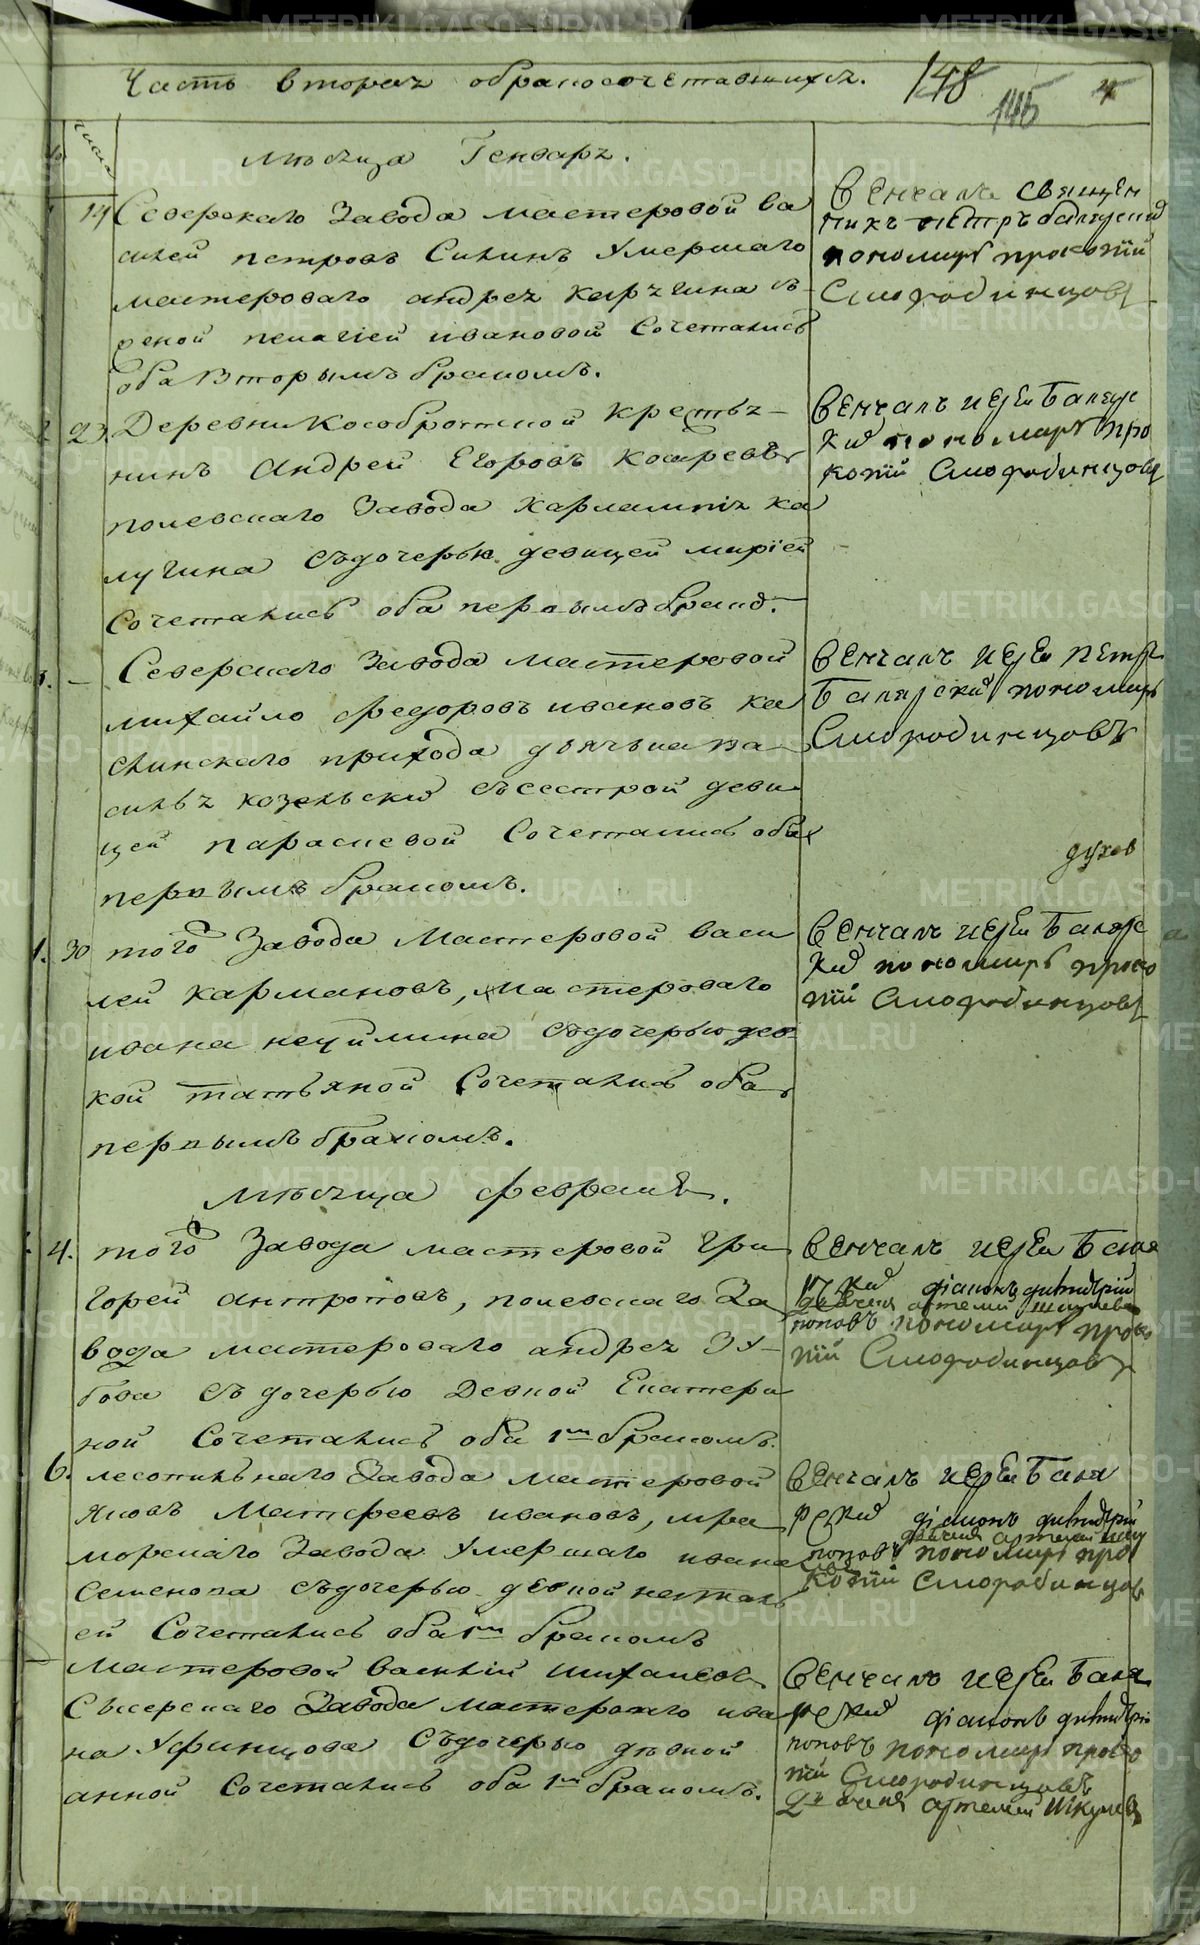 Часть вторая о бракосочетавшихся.
148
145
4
числа
месяца Генваря.
14 Северскаго Завода мастеровой ва
силей петровъ Силинъ Умершаго
мастероваго андрея съ
женой пелагiей ивановой Сочетались
оба вторымъ бракомъ.
Венчалъ священ
никъ петръ
пономарь прокопiй
Смородинцовъ
23. Деревни Кособротской крестья
нинъ Андрей Егоровъ
полевскаго Завода харлампiя ка
лугина съдочерью девицей марiей
Сочетались оба первымъ браком.
Венчалъ iерей
пономарь про
копiй Смородинцовъ
Северскаго Завода мастеровой
михайло федоровъ ивановъ ка
слинскаго прихода дьячька ва
силья козельски съсестрой деви
цей параскевой Сочетались оба
первымъ бракомъ.
Венчалъ iерей петръ
пономарь
Смородинцовъ
духов
30 того Завода Мастеровой васи
лей кармановъ, мастероваго
ивана съдочерью дев
кой татьяной Сочетались оба
первымъ бракомъ.
Венчалъ iерей
пономарь проко
пiй Смородинцовъ
месяца февраля.
4. того Завода мастеровой гри
горей антроповъ, полевскаго За
вода мастероваго андрея Зу
бова съ дочерью Девкой Екатери
ной Сочетались оба 1м бракомъ.
Венчалъ iерей
дiаконъ димитрiй
артемий
поповъ пономарь проко
пiй Смородинцовъ
6. Завода мастеровой
яковъ Матфеевъ ивановъ, мра
морскаго Завода Умершаго ивана
Семенова съдочерью девкой наталь
ей Сочетались оба 1м бракомъ
Венчалъ iерей
дiаконъ димитрiй
артемий
поповъ пономарь про
копiй Смородинцов
Мастеровой василiй
Сысерскаго Завода мастероваго ива
на Уфимцова Съдочерью девкой
анной Сочетались оба 1м бракомъ.
Венчалъ iерей
дiаконъ димитрiй
поповъ пономарь проко
пiй Смородинцовъ
артемий Шкулев
METRIKI.GASO-URAL.RU